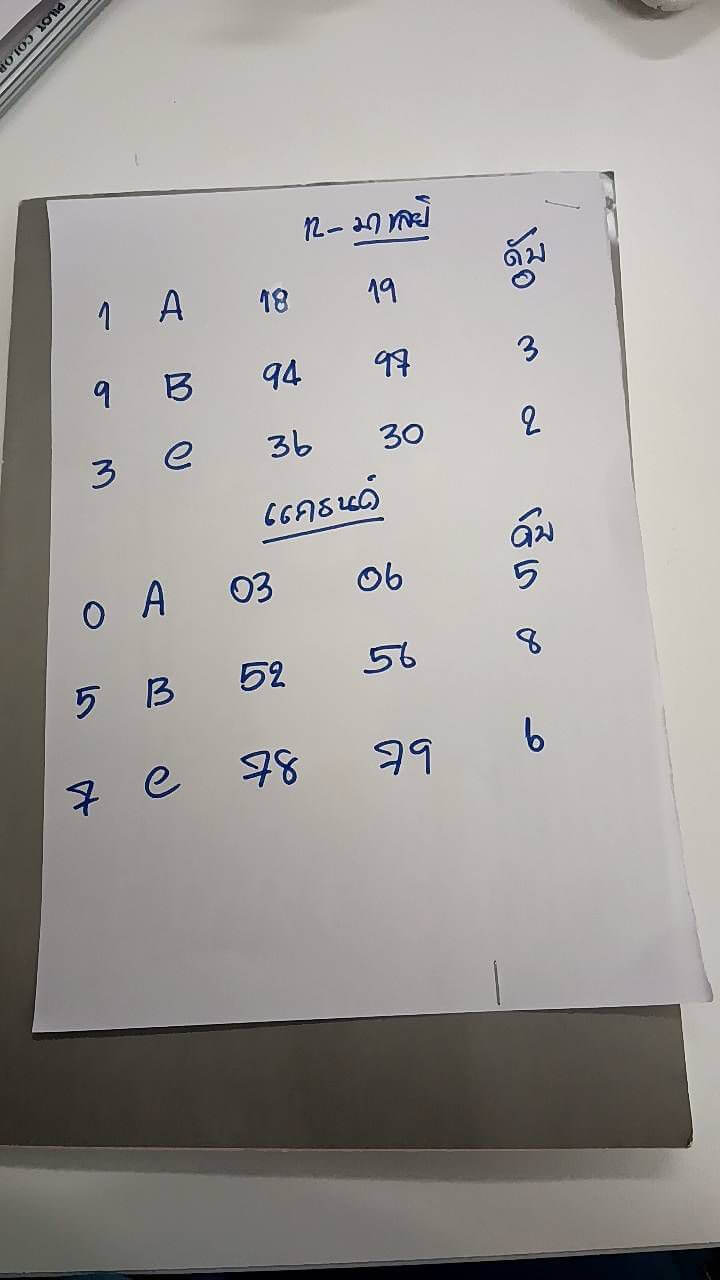 PILOT COLOR
12-มาเลย์
ดับ
1 A 18 19 0
9 B 94 97 3
3 C 36 30 2
แกรนด์
ดับ
0 A 03 06 5
5 B 52 56 8
7 C 78 79 6